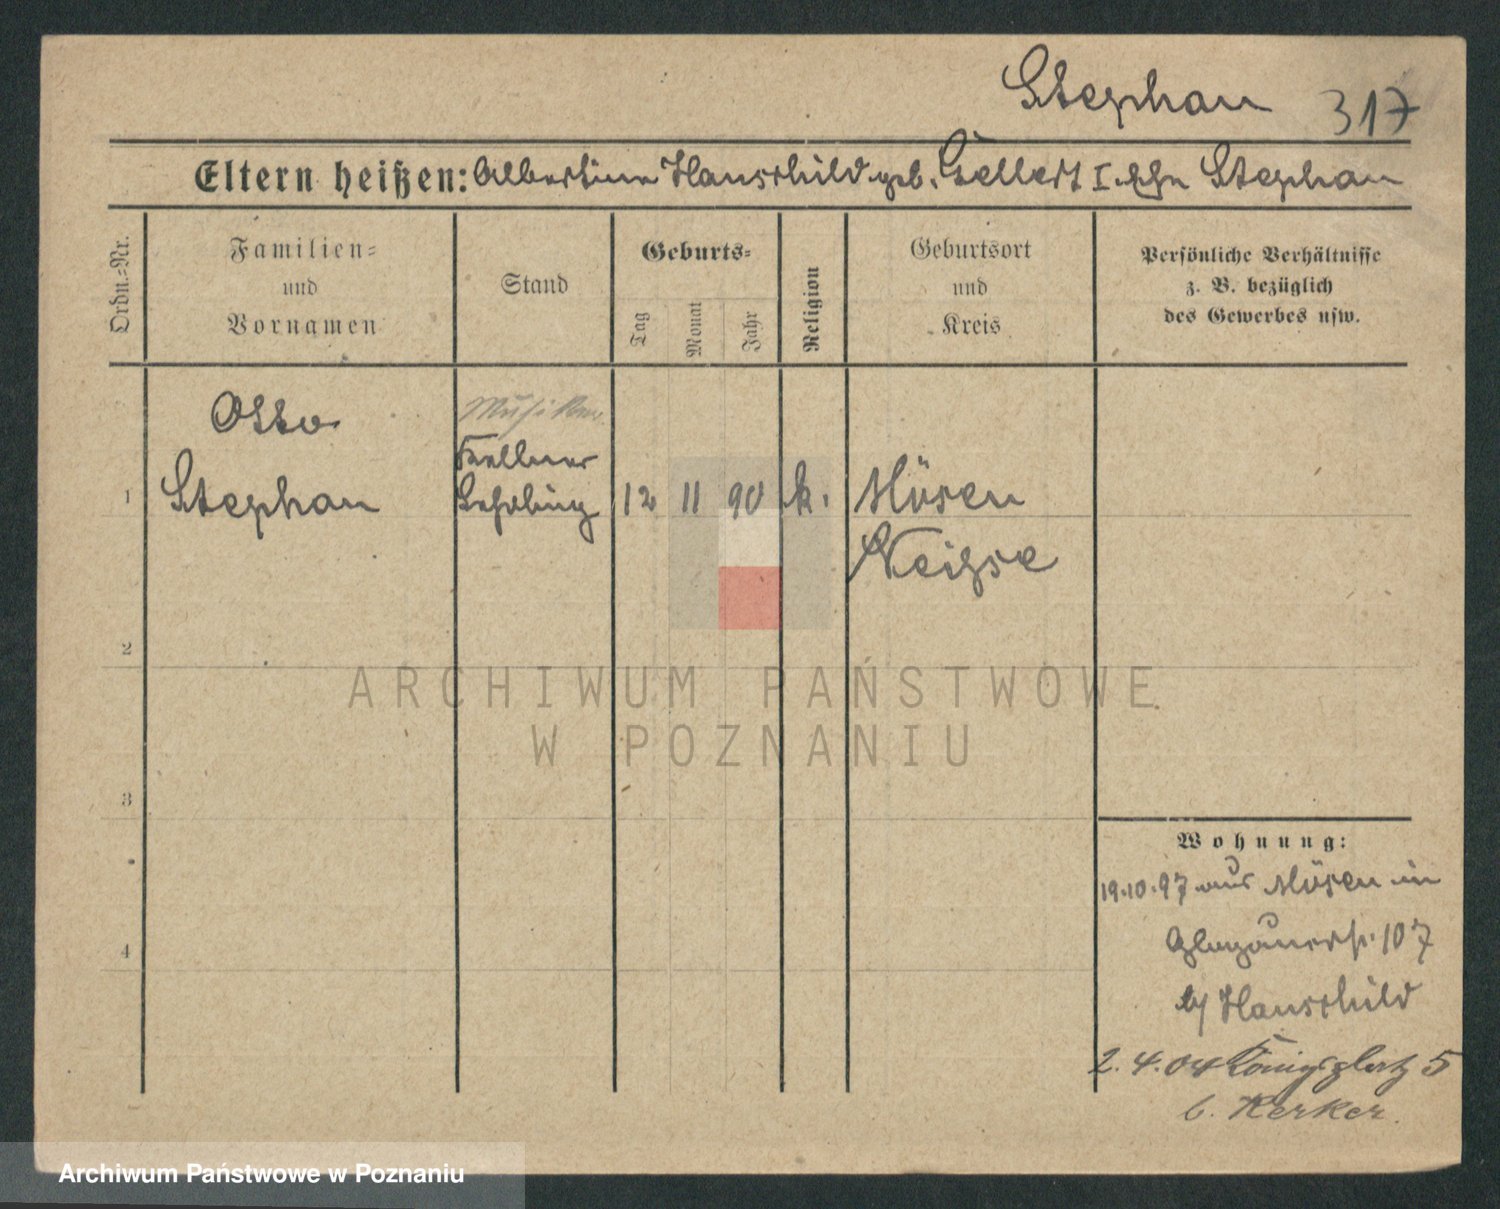 Stephan 317
Eltern heißen: Albertine Hauschild geb. Gellert I. Ehe Stephan
Ordn.-Nr.
Familien- und Vornamen
Stand
Geburts-
Tag
Monat
Jahr
Religion
Geburtsort und Kreis
Persönliche Verhältnisse
z. B. bezüglich
des Gewerbes usw.
Otto
Stephan
Musiker
Kellner
Lehrling
1
12 11 90 k.
Mösen
Neisse
2
ARCHIWUM PAŃSTWOWE
W POZNANIU
3
4
Wohnung:
19.10.97 aus Mösen in
Glogauerstr. 107
b/ Hauschild
2.4.04 Königsplatz 5
b. Kerker
Archiwum Państwowe w Poznaniu